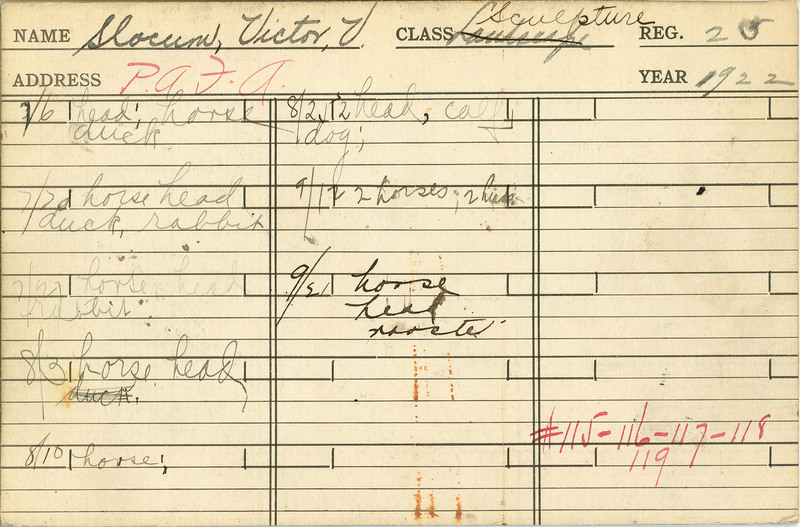 NAME Slocum, Victor, V. CLASS Sculpture REG. 25
ADDRESS P.A.F.A. YEAR 1922
7/6 head; horse
duck
7/20 horse head
duck, rabbit
7/27 horse head
rabbit.
8/3 horse head
duck.
8/10 horse;
8/2 head, calf,
dog;
9/12 2 horses; 2
9/21 horse
head
rooster
#115-116-117-118
119